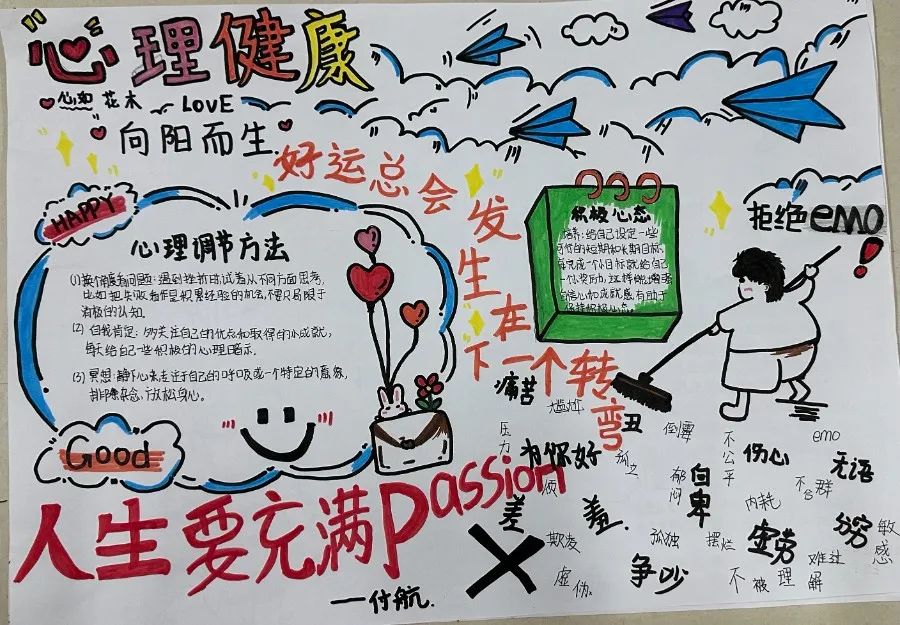 心理健康
心如花木
LOVE
向阳而生
好运总会
发生在
下一个转
弯
HAPPY
心理调节方法
(1) 换个角度看问题：遇到挫折时，试着从不同方面思考，
比如把失败看作是积累经验的机会，不要只局限于
消极的认知。
(2) 自我肯定：多关注自己的优点和取得的小成就，
每天给自己一些积极的心理暗示。
(3) 冥想：静下心来专注于自己的呼吸或一个特定的意象，
排除杂念，放松身心。
Good
积极心态
培养：给自己设定一些
可行的短期和长期目标，
每完成一个小目标就给自己
一个小奖励，这样能增强
自信心和成就感有助于
保持积极心态。
拒绝emo
！
痛苦
尴尬
丑
压力
倒霉
不公平
伤心
emo
无语
孤立
郁闷
自卑
烦
内耗
不合群
差
羞
欺负
孤独
摆烂
虚劳
穷
敏感
虚伪
争吵
不被理解
难过
人生要充满passion
——付航.